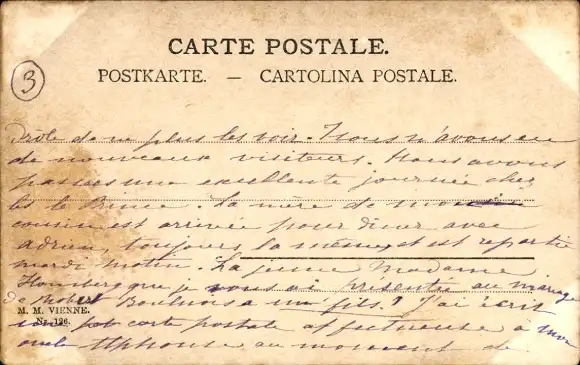 CARTE POSTALE.
POSTKARTE. — CARTOLINA POSTALE.
3
Drôle de ne plus les voir. Nous n'avons eu
de nouveaux visiteurs. Nous avons
passés une excellente journée chez
la mère de mon
cousin est arrivée pour dîner avec
Adrien, toujours la même et est repartie
mardi matin. La jeune Madame
que je vous ai présentée au mariage
de Robert a un fils? J'ai écrit
M. M. VIENNE.
Nr. 126.
carte postale affectueuse à mon
oncle Alphonse au moment de